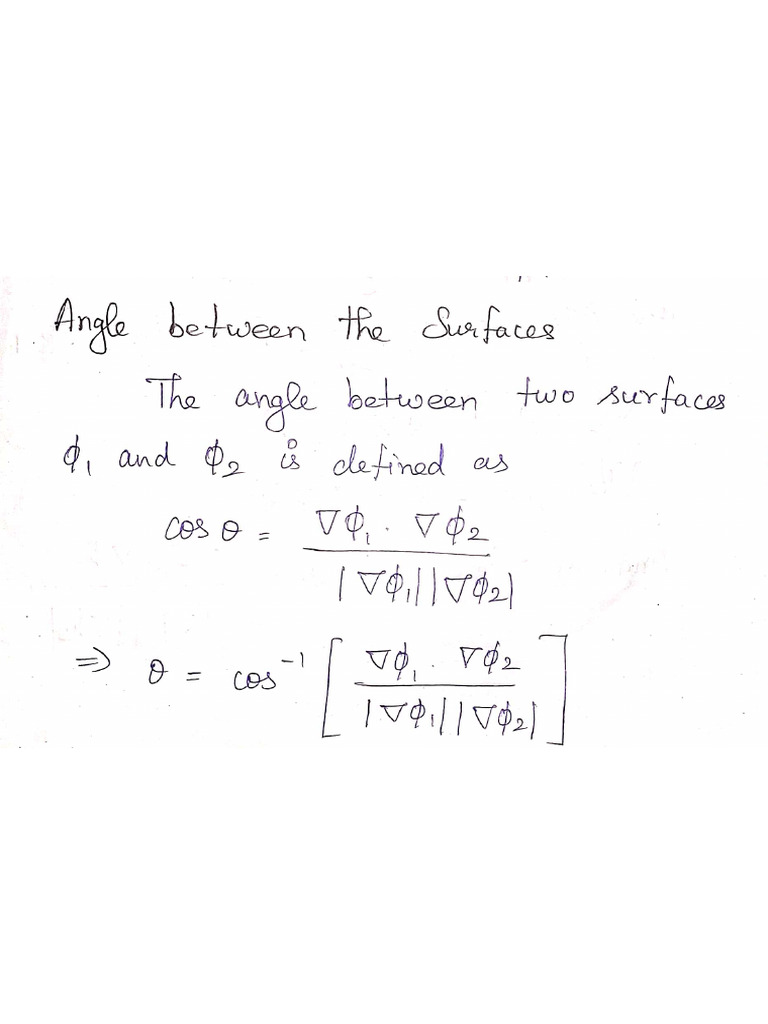 Angle between the Surfaces
The angle between two surfaces
ϕ₁ and ϕ₂ is defined as
cos θ = ∇ϕ₁ · ∇ϕ₂ / |∇ϕ₁||∇ϕ₂|
⇒ θ = cos⁻¹ [ ∇ϕ₁ · ∇ϕ₂ / |∇ϕ₁||∇ϕ₂| ]